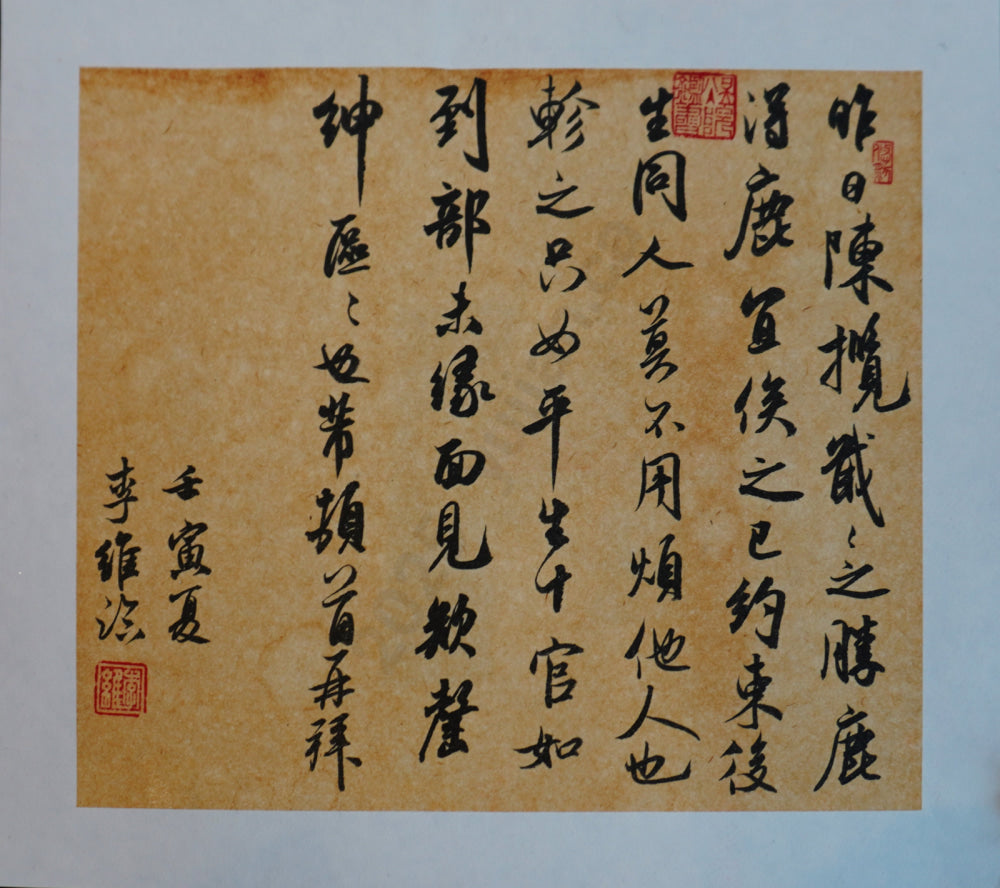 昨日陳攬戢〻之勝鹿
得鹿宜俟之已約束後
生同人莫不用煩他人也
軫之只如平生十官如
到部未緣面見欲罄
紳區〻也芾頓首再拜
壬寅夏
李維